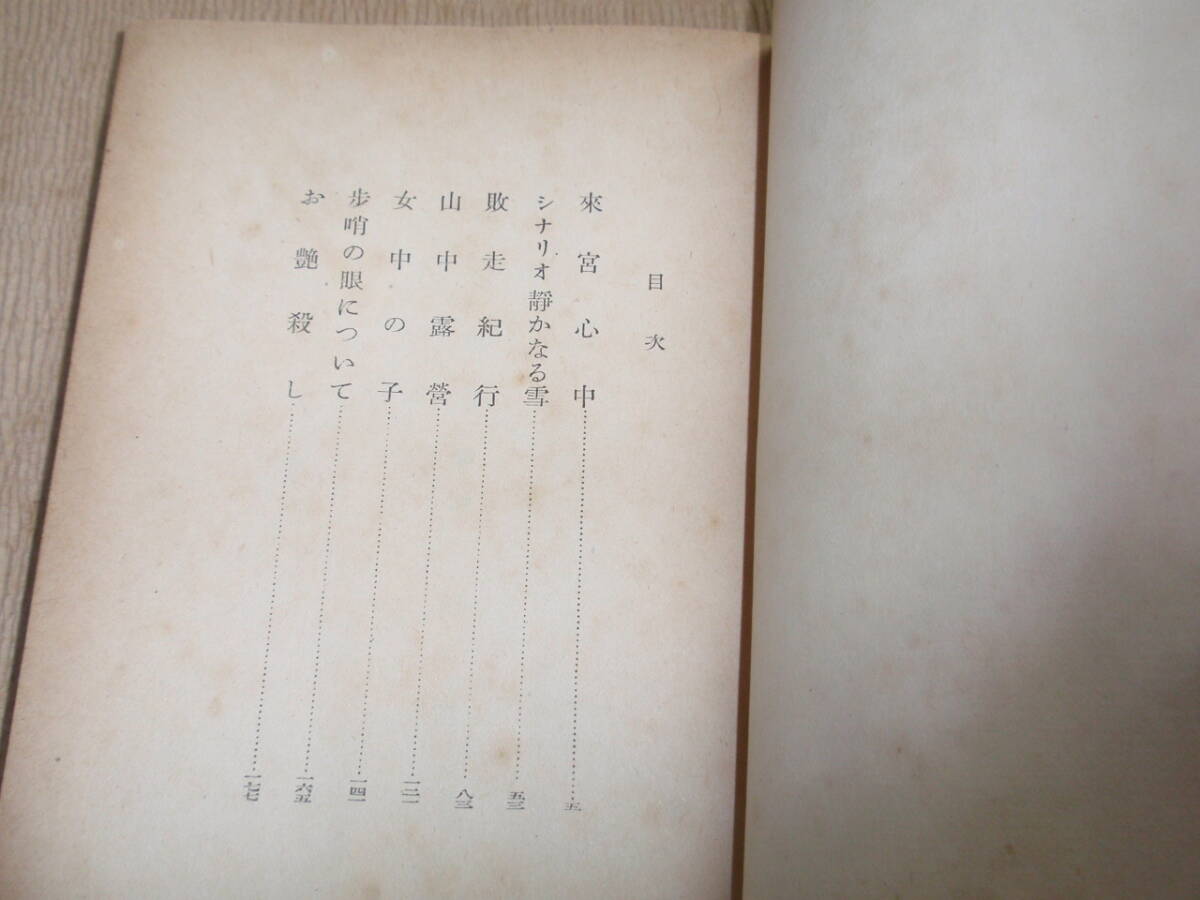 目次
來宮心中……五
シナリオ 靜かなる雪……五三
敗走紀行……八三
山中露營……一二一
女中の子……一四一
歩哨の眼について……一六五
お艷殺し……一七七